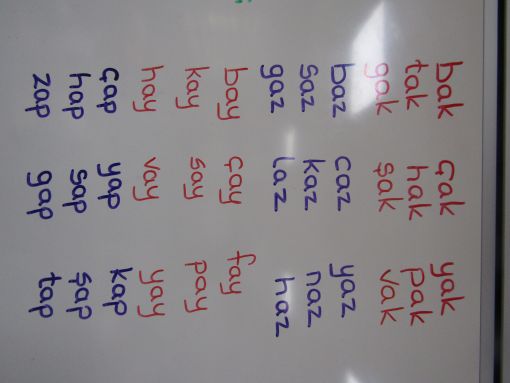 bak çak yak
tak hak pak
gak şak vak
baz caz yaz
saz kaz naz
gaz laz haz
bay çay fay
kay say pay
hay vay yay
çap yap kap
hap sap şap
zap gap tap